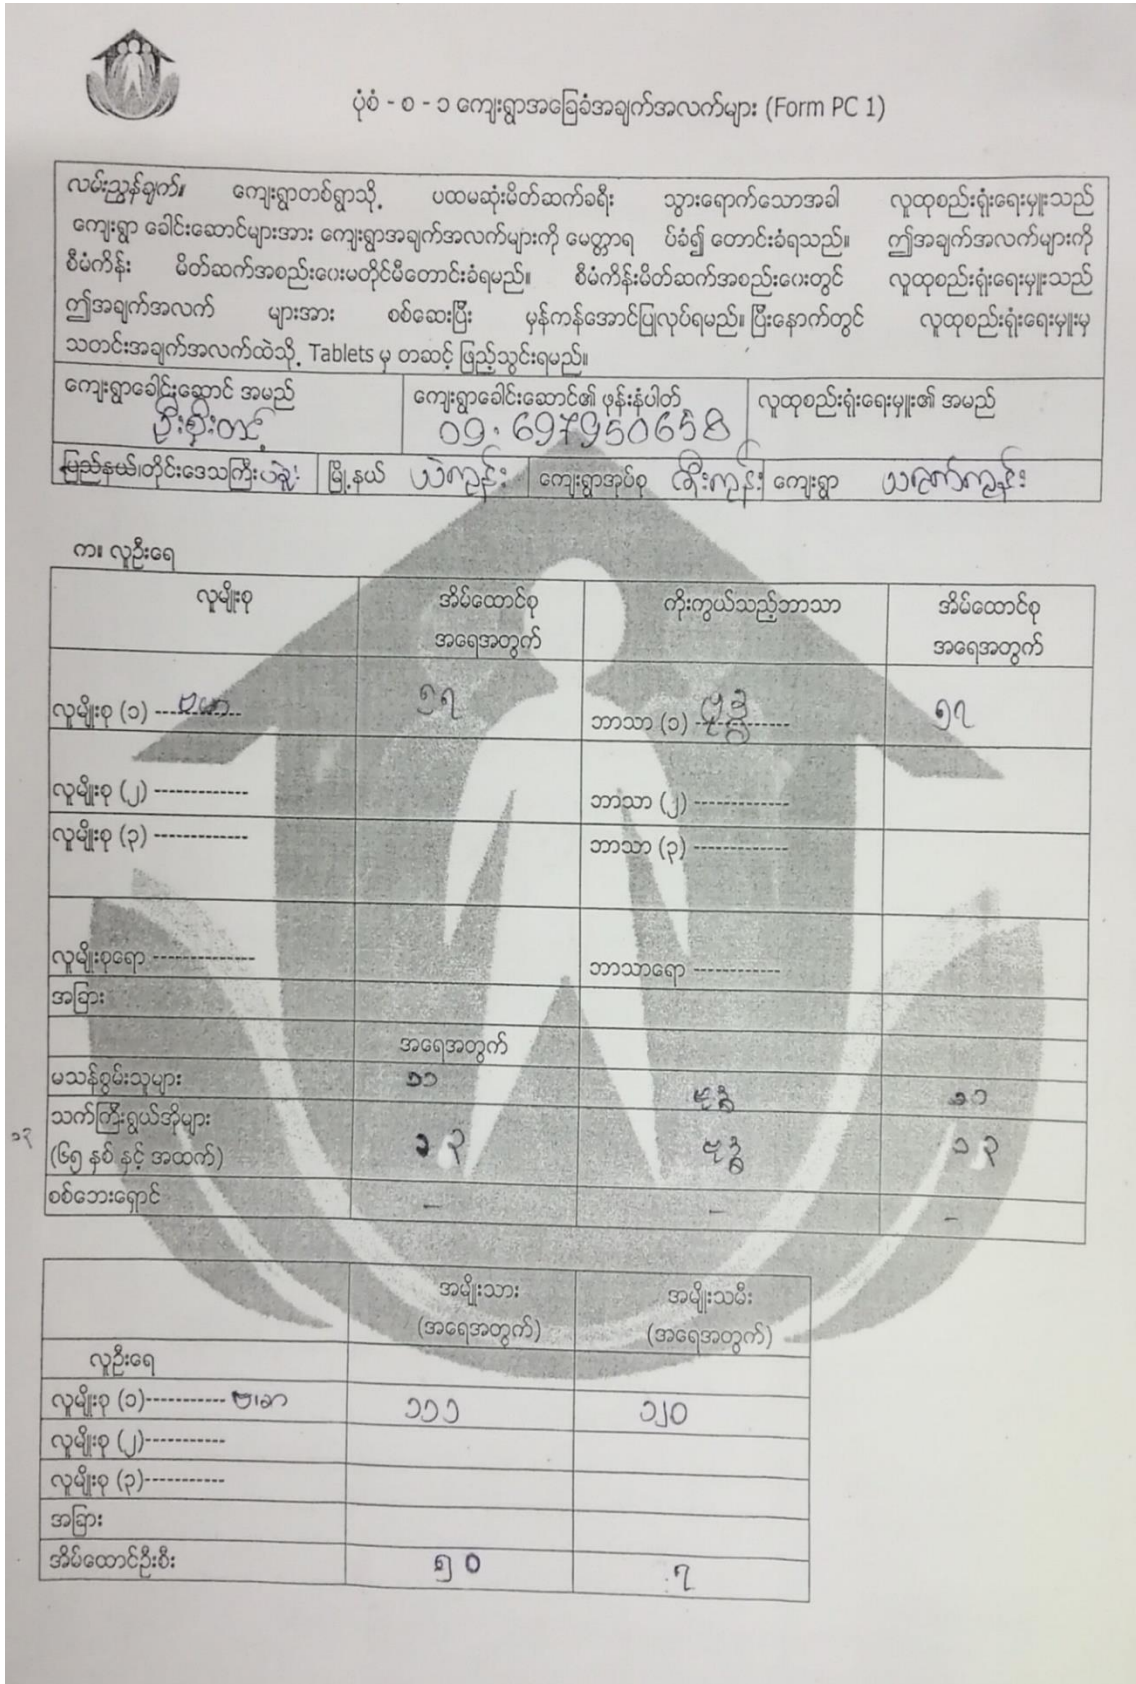 ပုံစံ - စ - ၁ ကျေးရွာအခြေခံအချက်အလက်များ (Form PC 1)
လမ်းညွှန်ချက်။ ကျေးရွာတစ်ရွာသို့ ပထမဆုံးမိတ်ဆက်ခရီး သွားရောက်သောအခါ လူထုစည်းရုံးရေးမှူးသည်
ကျေးရွာ ခေါင်းဆောင်များအား ကျေးရွာအချက်အလက်များကို မေတ္တာရ ပ်ခံ၍ တောင်းခံရသည်။ ဤအချက်အလက်များကို
စီမံကိန်း မိတ်ဆက်အစည်းဝေးမတိုင်မီတောင်းခံရမည်။ စီမံကိန်းမိတ်ဆက်အစည်းဝေးတွင် လူထုစည်းရုံးရေးမှူးသည်
ဤအချက်အလက် များအား စစ်ဆေးပြီး မှန်ကန်အောင်ပြုလုပ်ရမည်။ ပြီးနောက်တွင် လူထုစည်းရုံးရေးမှူးမှ
သတင်းအချက်အလက်ထဲသို့ Tablets မှ တဆင့် ဖြည့်သွင်းရမည်။
ကျေးရွာခေါင်းဆောင် အမည် ကျေးရွာခေါင်းဆောင်၏ ဖုန်းနံပါတ် လူထုစည်းရုံးရေးမှူး၏ အမည်
ဦးစိုး 09. 697950658
ပြည်နယ်၊တိုင်းဒေသကြီး ပဲခူး မြို့နယ် ကျေးရွာအုပ်စု ကျေးရွာ
က။ လူဦးရေ
လူမျိုးစု အိမ်ထောင်စု ကိုးကွယ်သည့်ဘာသာ အိမ်ထောင်စု
အရေအတွက် အရေအတွက်
လူမျိုးစု (၁) ------------- ဗမာ ၅၇ ဘာသာ (၁) ------------- ဗုဒ္ဓ ၅၇
လူမျိုးစု (၂) ------------- ဘာသာ (၂) -------------
လူမျိုးစု (၃) ------------- ဘာသာ (၃) -------------
လူမျိုးစုရော -------------- ဘာသာရော ------------
အခြား
အရေအတွက်
မသန်စွမ်းသူများ ၁၁ ဗုဒ္ဓ ၁၁
သက်ကြီးရွယ်အိုများ
၁၃ (၆၅ နှစ် နှင့် အထက်) ၁၃ ဗုဒ္ဓ ၁၃
စစ်ဘေးရှောင် – – –
အမျိုးသား အမျိုးသမီး
(အရေအတွက်) (အရေအတွက်)
လူဦးရေ
လူမျိုးစု (၁)----------- ဗမာ ၁၁၁ ၁၂၀
လူမျိုးစု (၂)-----------
လူမျိုးစု (၃)-----------
အခြား
အိမ်ထောင်ဦးစီး ၅၀ ၇